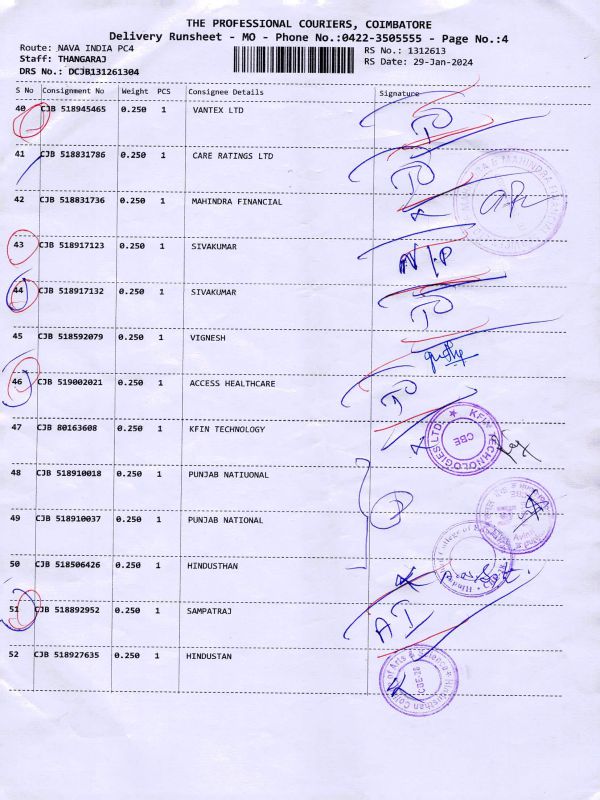 THE PROFESSIONAL COURIERS, COIMBATORE
Delivery Runsheet - MO - Phone No.:0422-3505555 - Page No.:4
Route: NAVA INDIA PC4 RS No.: 1312613
Staff: THANGARAJ RS Date: 29-Jan-2024
DRS No.: DCJB131261304
S No Consignment No Weight PCS Consignee Details Signature
40 CJB 518945465 0.250 1 VANTEX LTD
41 CJB 518831786 0.250 1 CARE RATINGS LTD
42 CJB 518831736 0.250 1 MAHINDRA FINANCIAL
43 CJB 518917123 0.250 1 SIVAKUMAR
44 CJB 518917132 0.250 1 SIVAKUMAR
45 CJB 518592079 0.250 1 VIGNESH
46 CJB 519002021 0.250 1 ACCESS HEALTHCARE
47 CJB 80163608 0.250 1 KFIN TECHNOLOGY
KFIN TECHNOLOGIES LTD.
CBE
48 CJB 518910018 0.250 1 PUNJAB NATIUONAL
49 CJB 518910037 0.250 1 PUNJAB NATIONAL
50 CJB 518506426 0.250 1 HINDUSTHAN
51 CJB 518892952 0.250 1 SAMPATRAJ
52 CJB 518927635 0.250 1 HINDUSTAN
Hindusthan College of Arts & Science
CBE-28